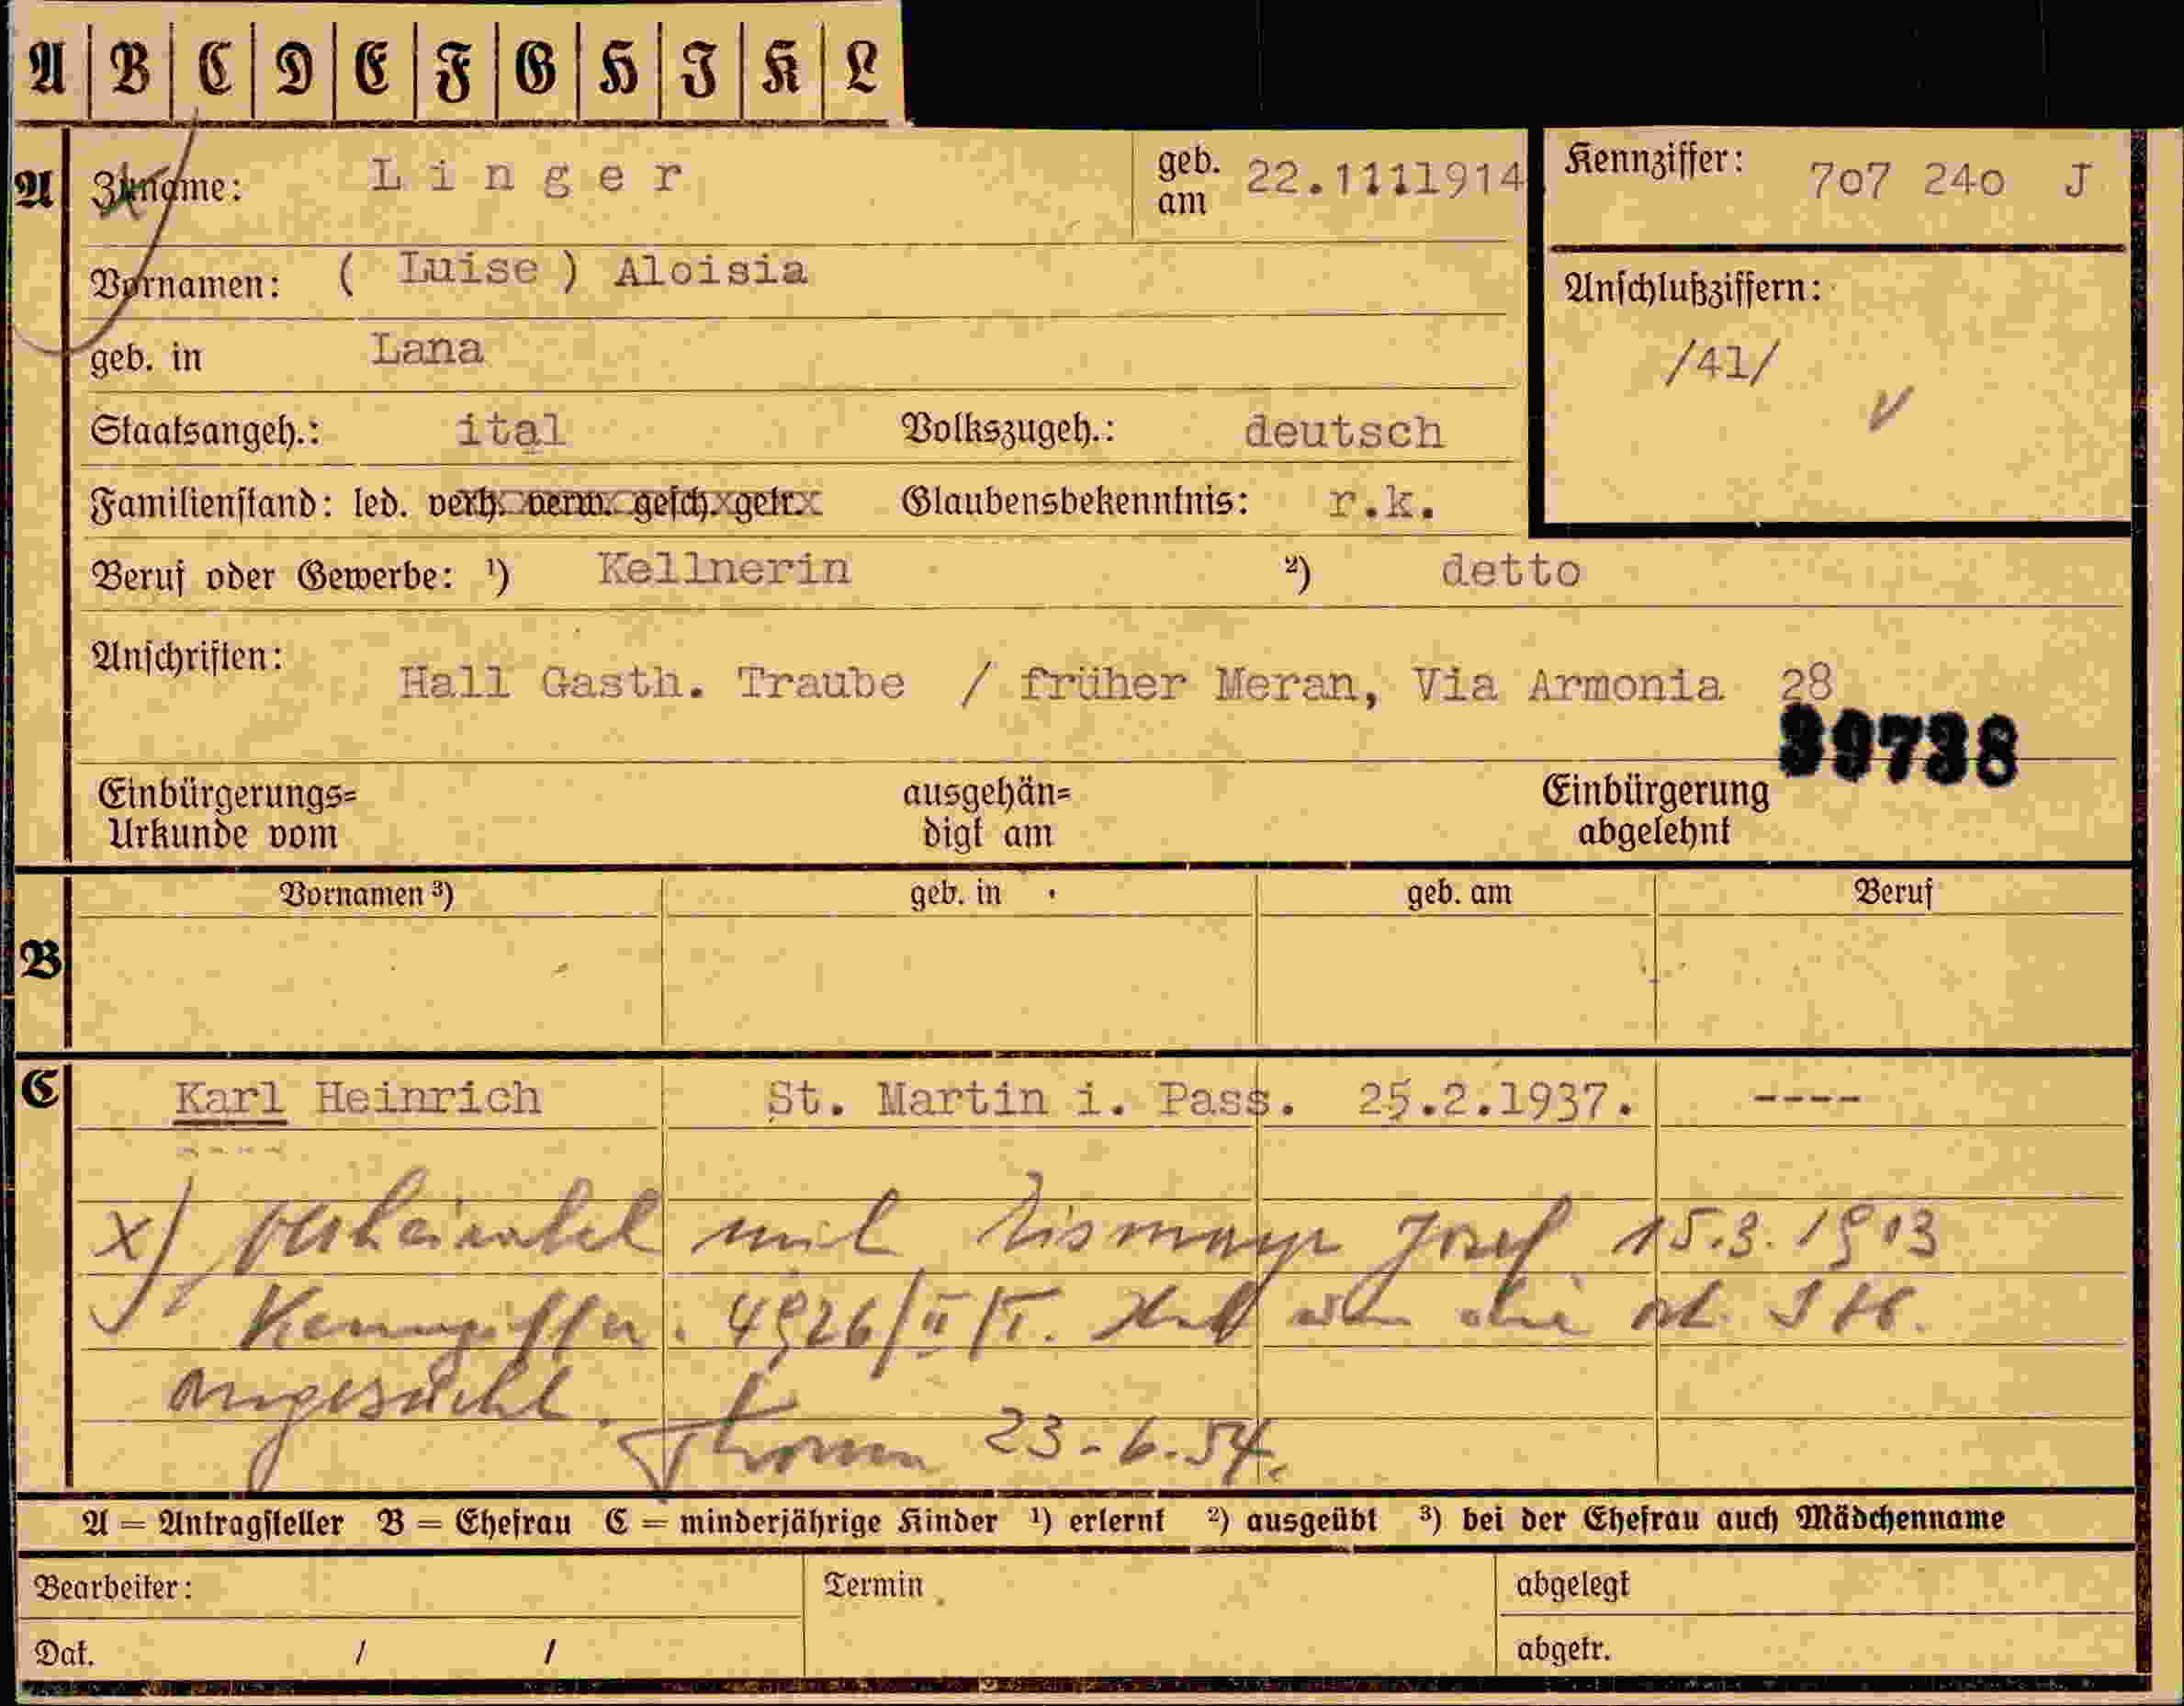 A B C D E F G H I K L
A Zuname: Linger geb. am 22.1111914 Kennziffer: 7o7 24o J
Vornamen: ( Luise ) Aloisia Anschlußziffern:
geb. in Lana /41/
Staatsangeh.: ital Volkszugeh.: deutsch
Familienstand: led. verh. verw. gesch. getr. Glaubensbekenntnis: r.k.
Beruf oder Gewerbe: ¹) Kellnerin ²) detto
Anschriften: Hall Gasth. Traube / früher Meran, Via Armonia 28
39738
Einbürgerungs= ausgehän= Einbürgerung
Urkunde vom digt am abgelehnt
Vornamen ³) geb. in geb. am Beruf
B
C Karl Heinrich St. Martin i. Pass. 25.2.1937. ----
x) Verheiratet mit Josef 15.3.1913
Kennziffer. 4926/II/I. Hat
angesucht.
Thoma 23-6-54.
A = Antragsteller B = Ehefrau C = minderjährige Kinder ¹) erlernt ²) ausgeübt ³) bei der Ehefrau auch Mädchenname
Bearbeiter: Termin abgelegt
Dat. / / abgetr.